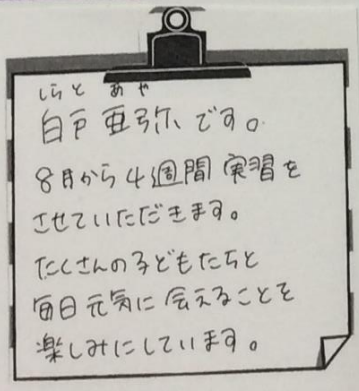 しらと あや
白戸 亜弥です。
8月から4週間 実習を
させていただきます。
たくさんの子どもたちと
毎日元気に会えることを
楽しみにしています。